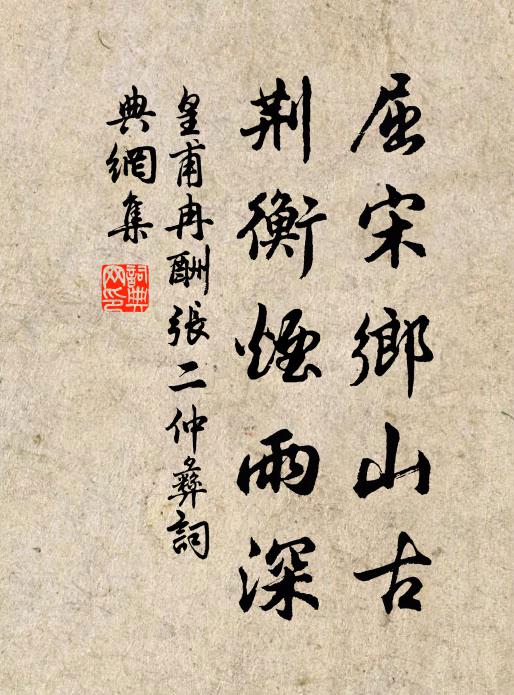 屈宋鄉山古
荆衡煙雨深
皇甫冉酬張二仲彝詞
典網集
詞典網印